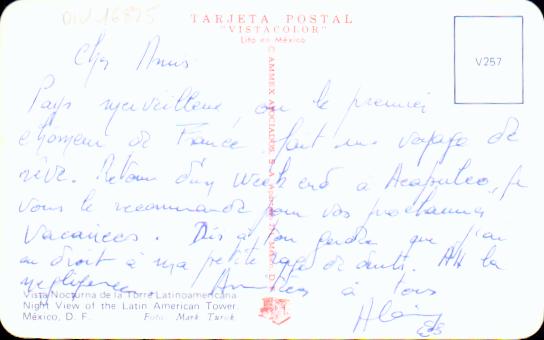 DIV 16825
TARJETA POSTAL
"VISTACOLOR"
Lito en México
V257
AMMEX ASOCIADOS, S.A.
Chers Amis
Pays merveilleux, où le premier
chômeur de France fait un voyage de
rêve. Retour d'un week end à Acapulco, je
vous le recommande pour vos prochaines
vacances. Dis à ton que j'ai
eu droit à ma petite rage de dents. Ah la
négligence Amitiés à tous
Alain
Vista Nocturna de la Torre Latinoamericana
Night View of the Latin American Tower
México, D. F. Foto: Mark Turok